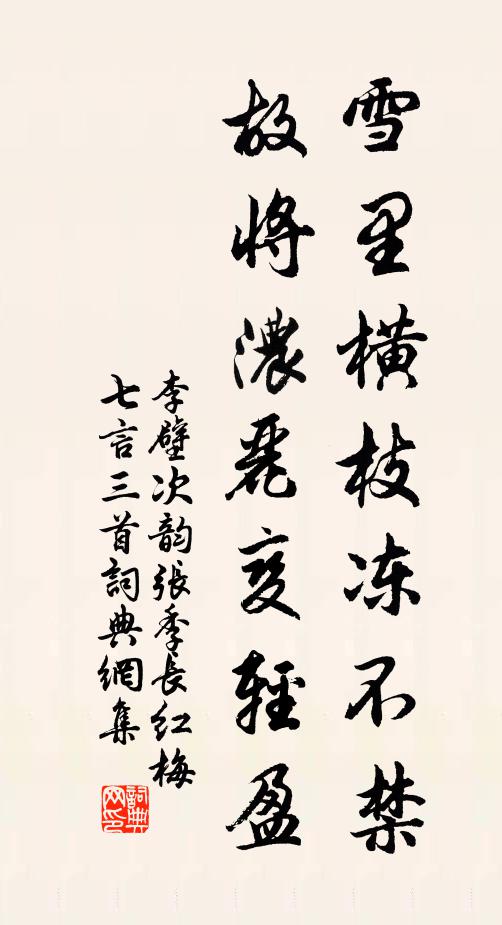 雪里横枝冻不禁
故将濃麗变輕盈
李壁次韵張季长红梅
七言三首詞典網集
詞典网印